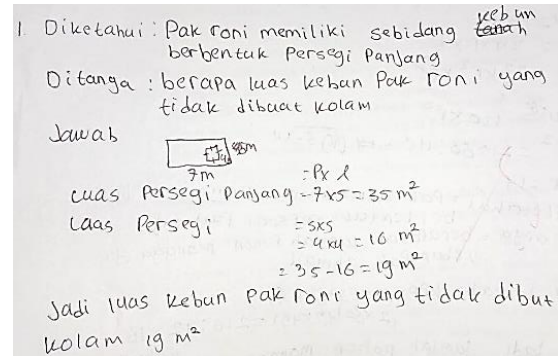 1. Diketahui : Pak roni memiliki sebidang kebun
berbentuk Persegi Panjang
Ditanga : berapa luas kebun Pak roni yang
tidak dibuat kolam
Jawab
5m
7m
= P x l
Luas Persegi Panjang = 7x5 = 35 m²
Luas Persegi = sxs
= 4x4 = 16 m²
= 35-16 = 19 m²
Jadi luas kebun Pak roni yang tidak dibut
kolam 19 m²